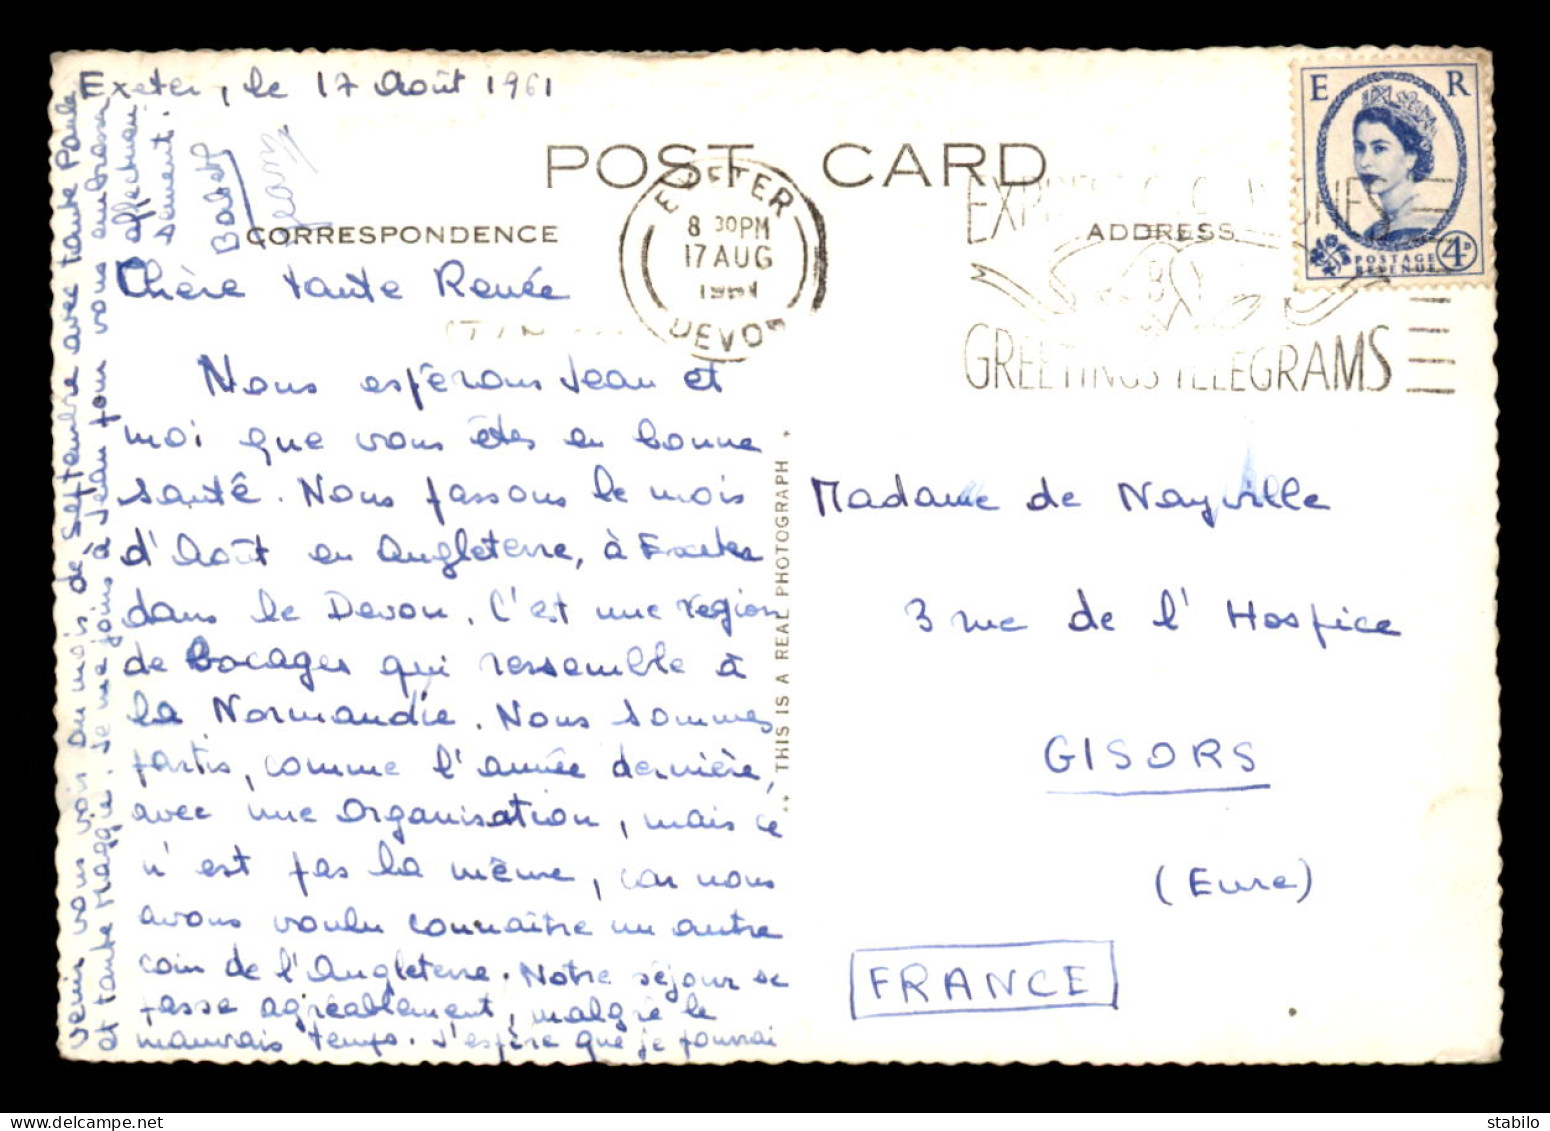 Exeter, le 17 Août 1961
POST CARD
CORRESPONDENCE
ADDRESS
E R
POSTAGE
REVENUE
4D
EXETER
8 30PM
17 AUG
1961
DEVON
GREETINGS TELEGRAMS
Chère tante Renée
Nous espérons Jean et
moi que vous êtes en bonne
santé. Nous passons le mois
d'Août en Angleterre, à Exeter
dans le Devon. C'est une région
de bocages qui ressemble à
la Normandie. Nous sommes
partis, comme l'année dernière,
avec une organisation, mais ce
n'est pas la même, car nous
avons voulu connaître un autre
coin de l'Angleterre. Notre séjour se
passe agréablement, malgré le
mauvais temps. J'espère que je pourrai
venir vous voir au mois de Septembre avec tante Paule
et tante Maggie. Je me joins à Jean pour vous embrasser
affectueu
sement.
Babeth
Jean
THIS IS A REAL PHOTOGRAPH
Madame de Nayville
3 rue de l'Hospice
GISORS
(Eure)
FRANCE
stampsdelo